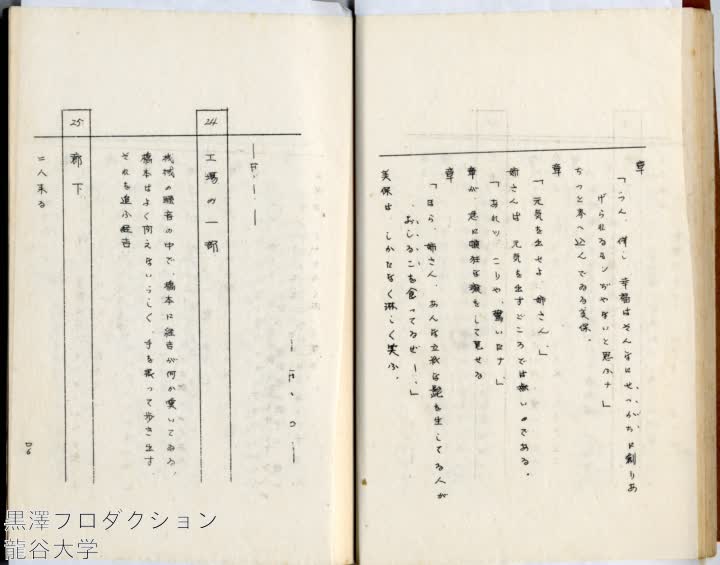 章
「うん、併し、幸福はそんなにせっかちに創りあ
げられるモンぢやないと思ふナ」
ぢっと考へ込んでゐる美保。
章
「元気を出せよ、姉さん。」
姉さんは元気を出すどころでは無いのである。
「あれッ、こりや、驚いたナ。」
章が、急に頓狂な声をして見せる
章
「ほら、姉さん、あんな立派な髭を生してる人が
おしるこを食ってるぜー。」
美保は、しかたなく淋しく笑ふ。
24
工場の一部
機械の騒音の中で、橋本に
何か
橋本はよく聞えないらしく、手を振って歩き出す
それを追ふ
25
廊下
二人来る
黒澤プロダクション
龍谷大学